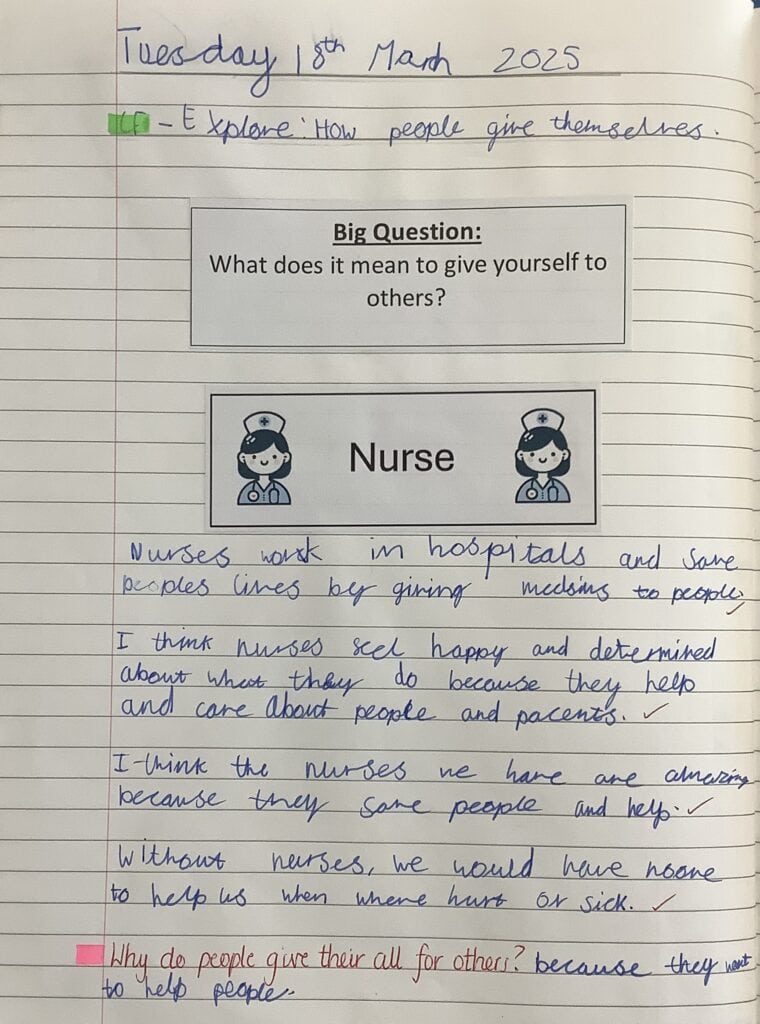 Tuesday 18th March 2025
LF - Explore: How people give themselves.
Big Question:
What does it mean to give yourself to
others?
Nurse
Nurses work in hospitals and save
peoples lives by giving medsins to people,
I think nurses feel happy and determined
about what they do because they help
and care about people and pacents.
I think the nurses we have are amazing
because they save people and help.
Without nurses, we would have noone
to help us when where hurt or sick.
Why do people give their all for others? because they want
to help people.